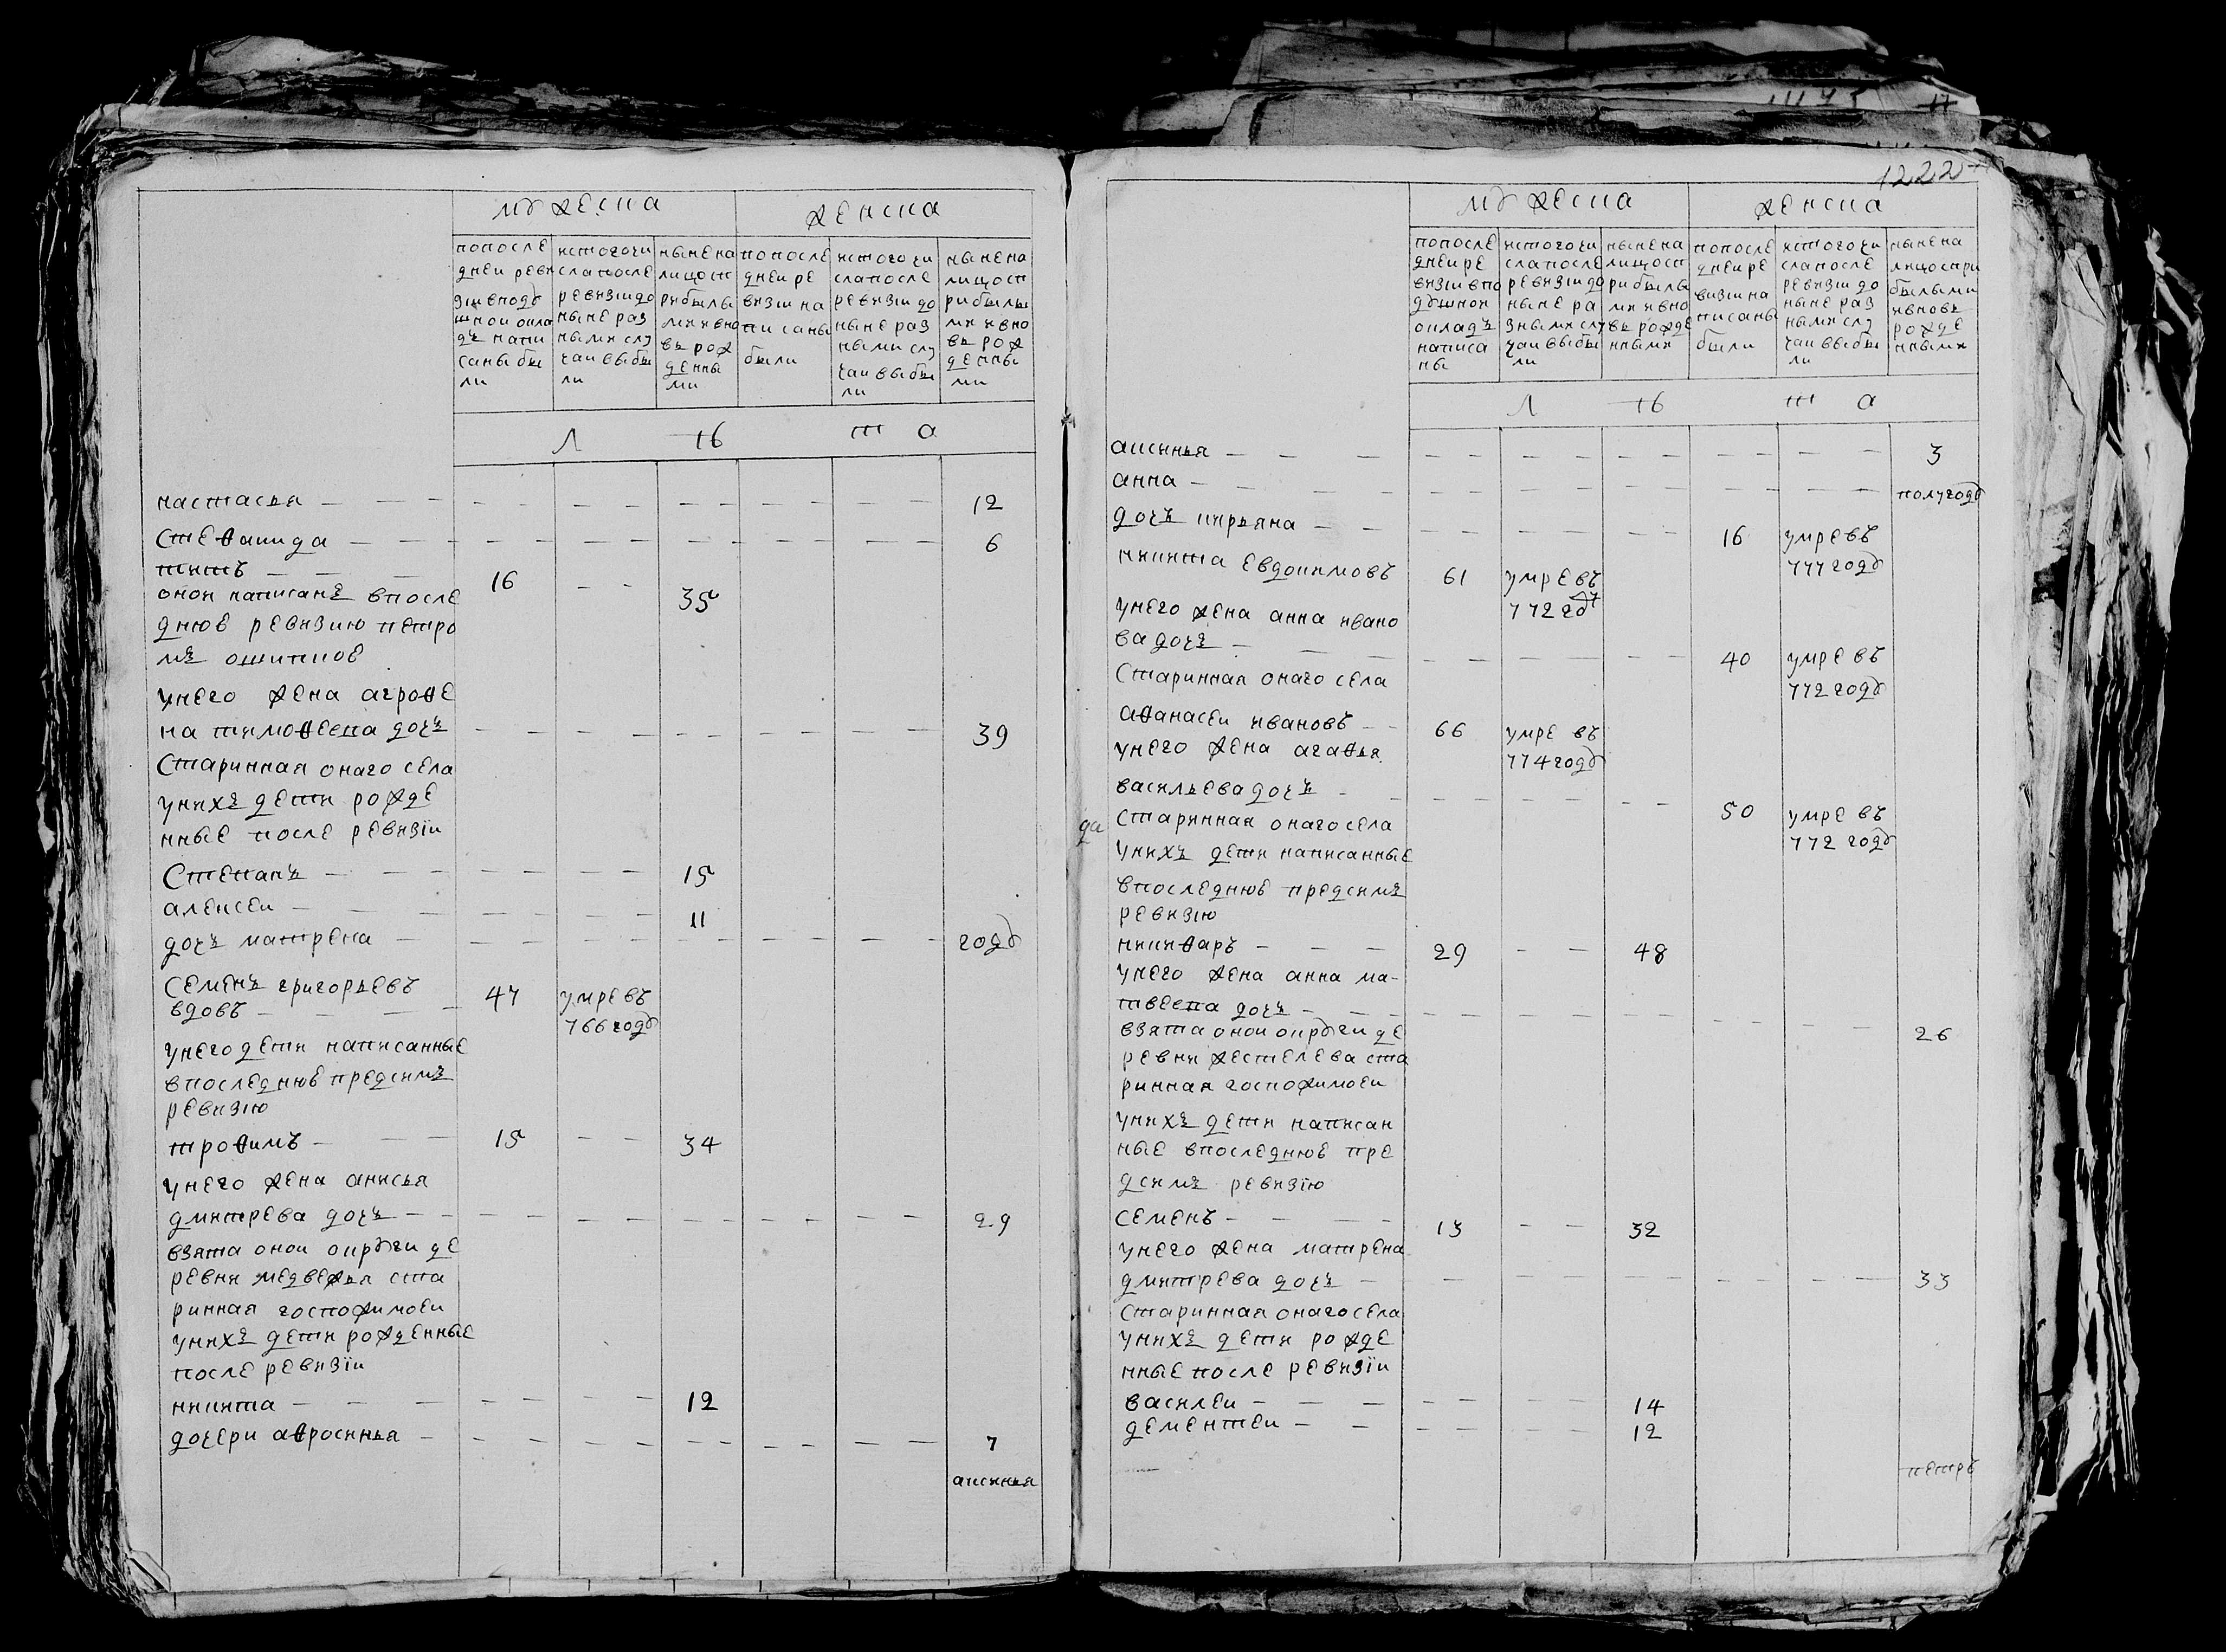 мужеска женска
попосле дней ревизии вподушной окладъ написаны были
истогочисла после ревизии до ныне разными случаи выбыли
ныне налицо сприбылыми ивновь рожденными
попосле дней ревизии написаны были
истогочисла после ревизии до ныне разными случаи выбыли
ныне налицо сприбылыми ивновь рожденными
лѣта
настасья — 12
стеѳанида — 6
титъ — 16 — 35
оной написанъ впосле
днюѣ ревизию петро
мъ ошипкоѣ
унего жена аграѳе
на тимоѳеева дочь — 39
старинная онаго села
унихъ дети рожде
нные после ревизїи
степанъ — 15
алексеи — 11
дочь матрена — году
семенъ григорьевъ
вдовъ — 47 умре въ
766 году
унего дети написанные
впоследнюѣ предсимъ
ревизїю
троѳимъ — 15 — 34
унего жена анисья
дмитрева дочь — 29
взята оной округи де
ревни медвежья ста
ринная госпожи моей
унихъ дети рожденные
после ревизїи
никита — 12
дочери аѳросинья — 7
аксинья
1222
мужеска женска
попосле дней ревизии вподушной окладъ написаны
истогочисла после ревизии до ныне разными случаи выбыли
ныне налицо сприбылыми ивновь рожденными
попосле дней ревизии написаны были
истогочисла после ревизии до ныне разными случаи выбыли
ныне налицо сприбылыми ивновь рожденными
лѣта
аксинья — 3
анна — полугоду
дочь кирьяна — 16 умре въ
777 году
никита евдокимовъ 61 умре въ
772 году
унего жена анна ивано
ва дочь — 40 умре въ
772 году
старинная онаго села
аѳанасеи ивановъ — 66 умре въ
774 году
унего жена агаѳья
васильева дочь — 50 умре въ
772 году
да старинная онаго села
унихъ дети написанные
впоследнюѣ предсимъ
ревизїю
никиѳаръ — 29 — 48
унего жена анна ма-
твеева дочь — 26
взята оной округи де
ревни жестелева ста
ринная госпожи моей
унихъ дети написан
ные впоследнюѣ пре
дсимъ ревизїю
семенъ — 13 — 32
унего жена матрена
дмитрева дочь — 33
старинная онаго села
унихъ дети рожде
нные после ревизїи
василеи — 14
дементеи — 12
петръ